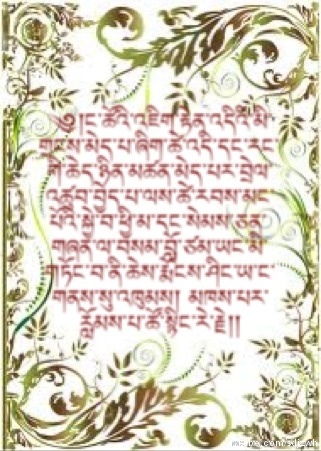 ༄།ང་ཚོའི་འཇིག་རྟེན་འདིའི་མི་
གནས་མེད་པ་ཞིག་ཚེ་འདི་དང་རང་
གི་ཆེད་ཉིན་མཚན་མེད་པར་བྲེལ་
འཚུབ་བྱེད་པ་ལས་ཚེ་རབས་མང་
པོའི་སྐྱེ་བ་ཕྱི་མ་དང་སེམས་ཅན་
གཞན་ལ་བསམ་བློ་ཙམ་ཡང་མི་
གཏོང་བ་ནི་ཆེས་རྨོངས་ཤིང་ཡ་ང་
གནས་སུ་འཁུམས། མཁས་པར་
རློམས་པ་ཚོ་སྙིང་རེ་རྗེ།།